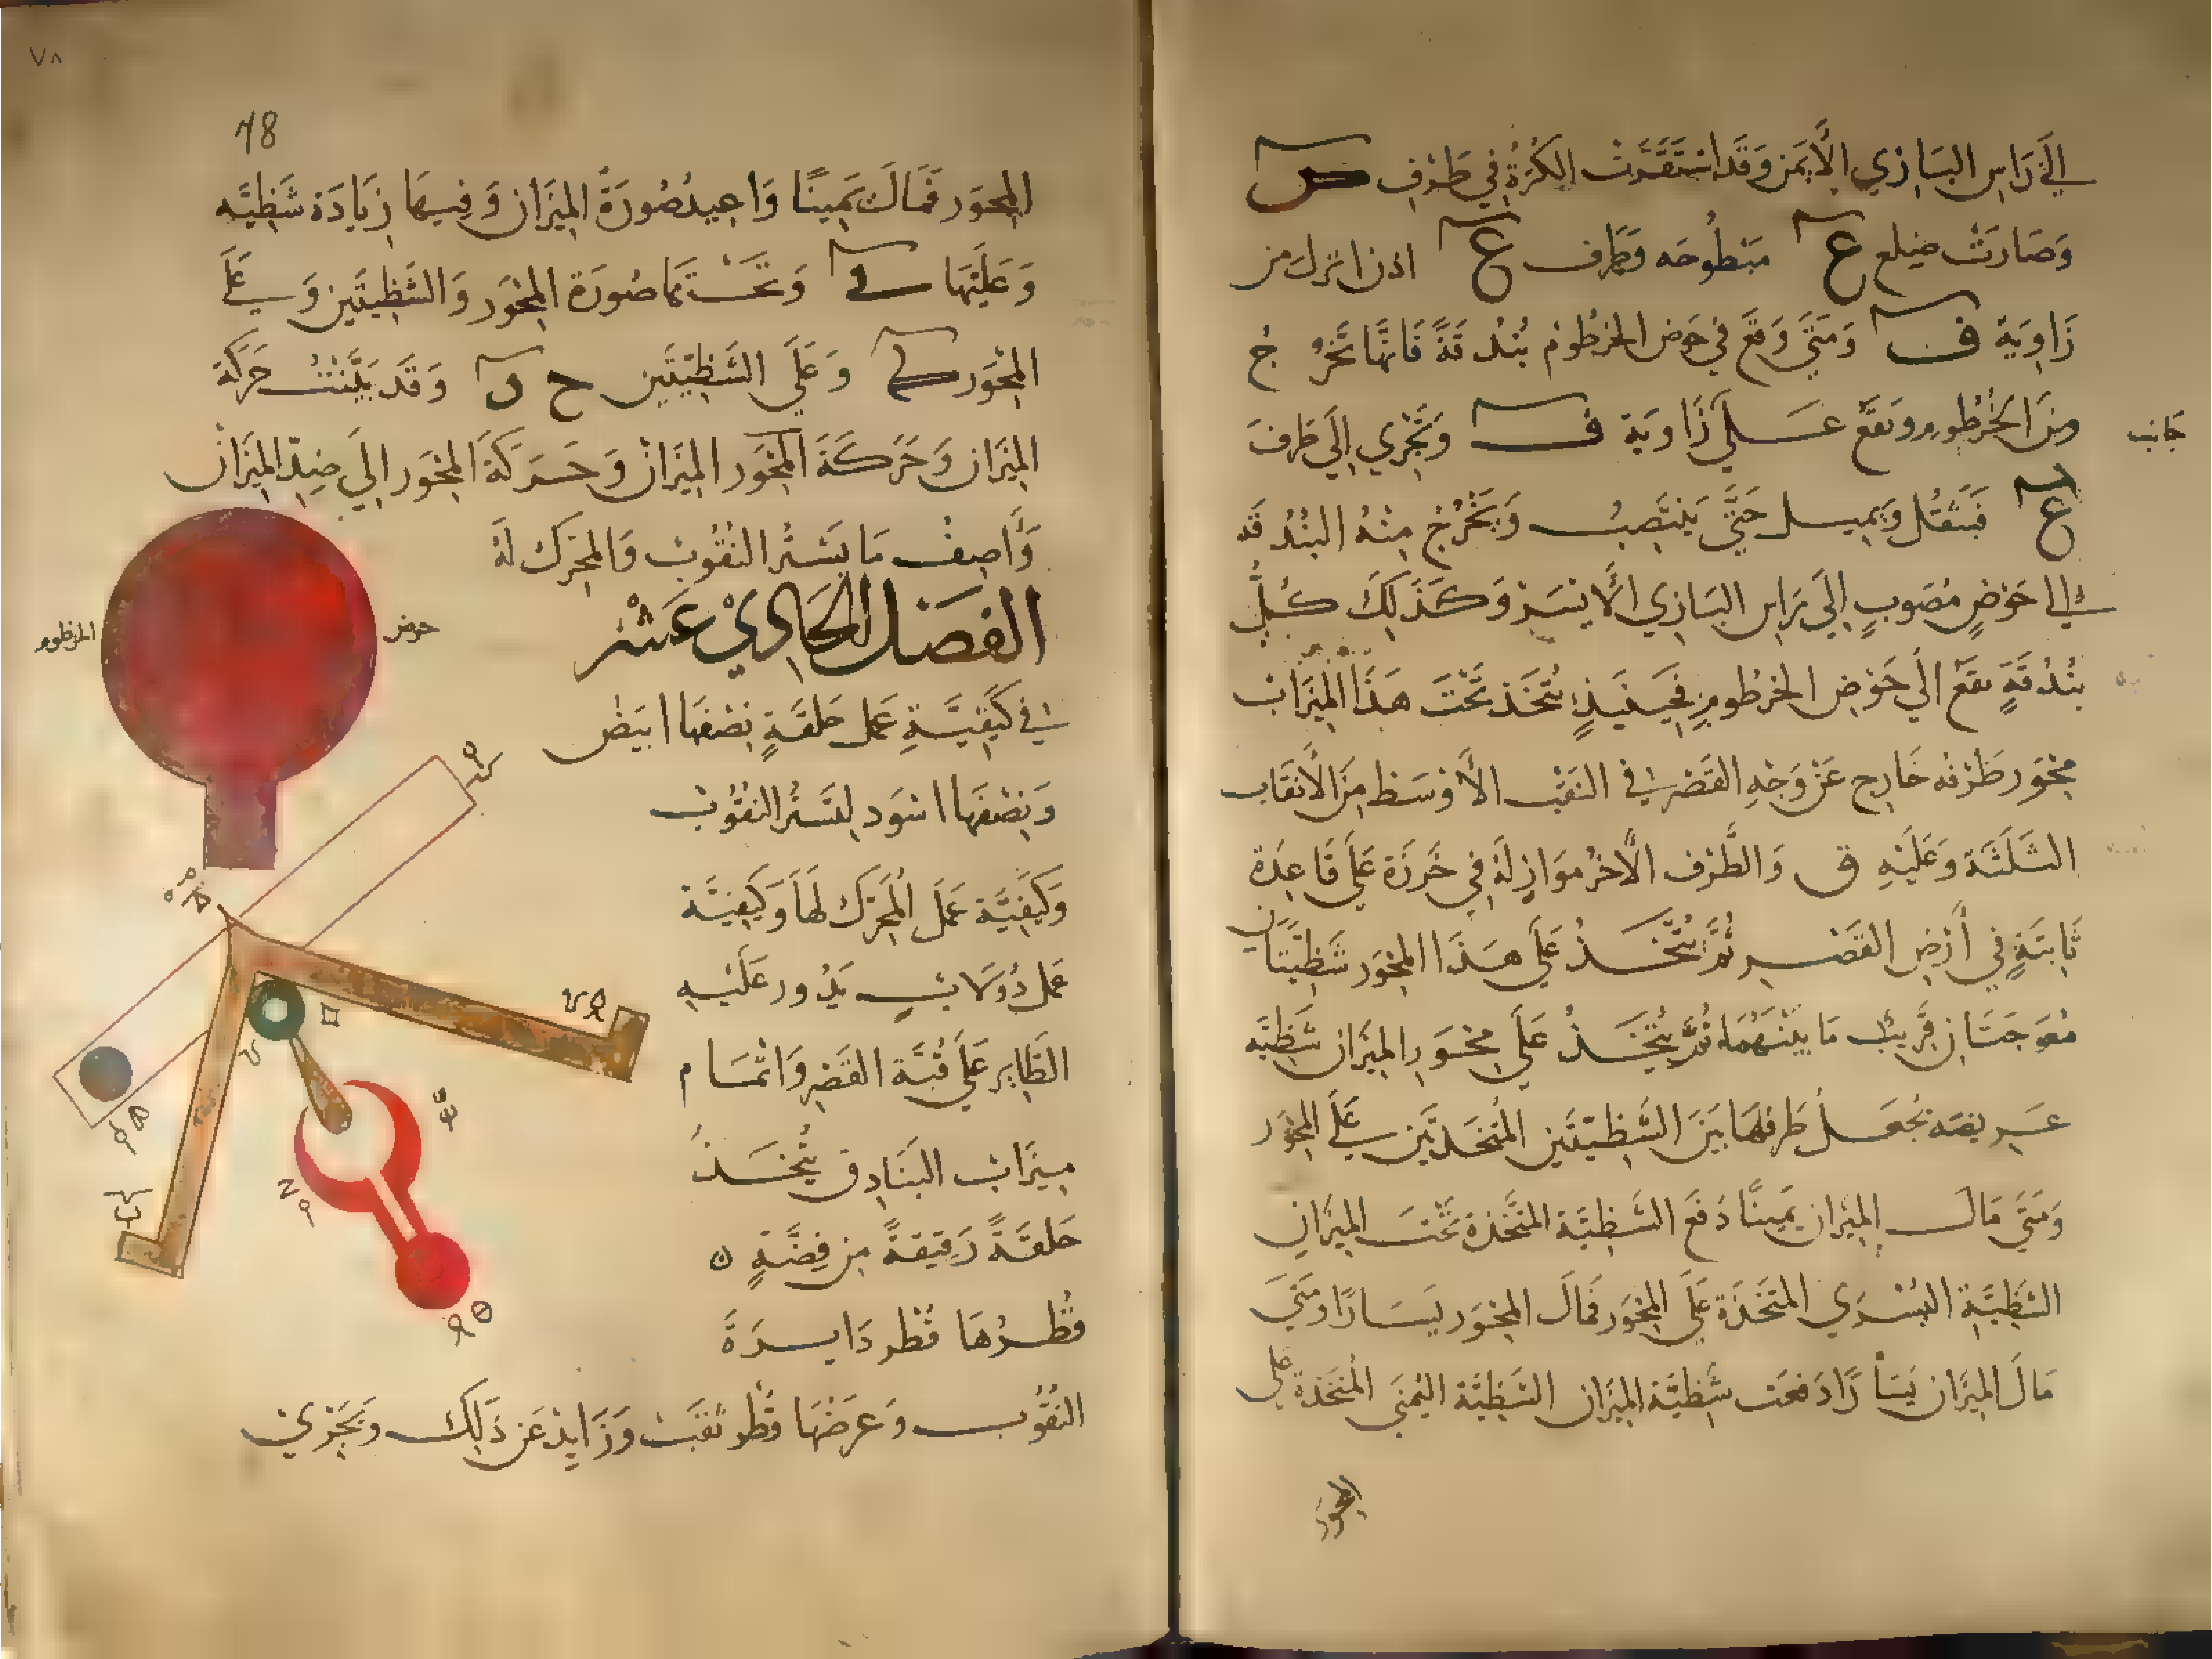 إلى راس البازي الأيمن وقد استقرت الكرة في طرف س
وصارت ضلع ع مبطوحه وطرف ع اذن انزل من
زاوية ف ومتى وقع في حوض الخرطوم بندقة فانها تخر ج
من الخرطوم وتقع على زاوية ف وتجري إلى طرف
جانب
ع فتثقل ويميل حتى ينتصب ويخرج منه البندقه
الى حوض مصوب إلى راس البازي الأيسر وكذلك كل
بندقة تقع الى حوض الخرطوم فحينئذ يتخذ تحت هذا الميزان
محور طرفه خارج عن وجه القصر في الثقب الأوسط من الأنقاب
الثلثة وعليه ق والطرف الآخر موازٍ له في خرزة على قاعدة
ثابتة في أرض القصر ثم يتخذ على هذا المحور شظيتان
معوجتان قريب ما بينهما ثم يتخذ على محور الميزان شظيه
عريضه يجعل طرفها بين الشظيتين المتخذتين على المحور
ومتى مال الميزان يمينًا دفع الشظية المتخذة تحت الميزان
الشظية اليسرى المتخذة على المحور فمال المحور يسارًا ومتى
مال الميزان يسارًا دفعت شظية الميزان الشظية اليمنى المتخذة على
المحور
٧٨
78
المحور فمال يمينًا واعيد صورة الميزان وفيها زيادة شظيه
وعليها وتحتها صورة المحور والشظيتين وعلى
المحور وعلى الشظيتين ح وقد بينت حركة
الميزان وحركة المحور الميزان وحركة المحور الى ضد الميزان
وأصف ما يستر الثقوب والمحرك له
الفصل الحادي عشر
في كيفية عمل حلقة نصفها ابيض
ونصفها اسود لتستر الثقوب
وكيفية عمل المحرك لها وكيفية
عمل دولاب يدور عليه
الطاير على قبة القصر واتمام
ميزاب البنادق يتخذ
حلقة رقيقة من فضة
قطرها قطر دايرة
الثقوب وعرضها قطر ثقب وزايد عن ذلك ويجزي
حوض
الخرطوم